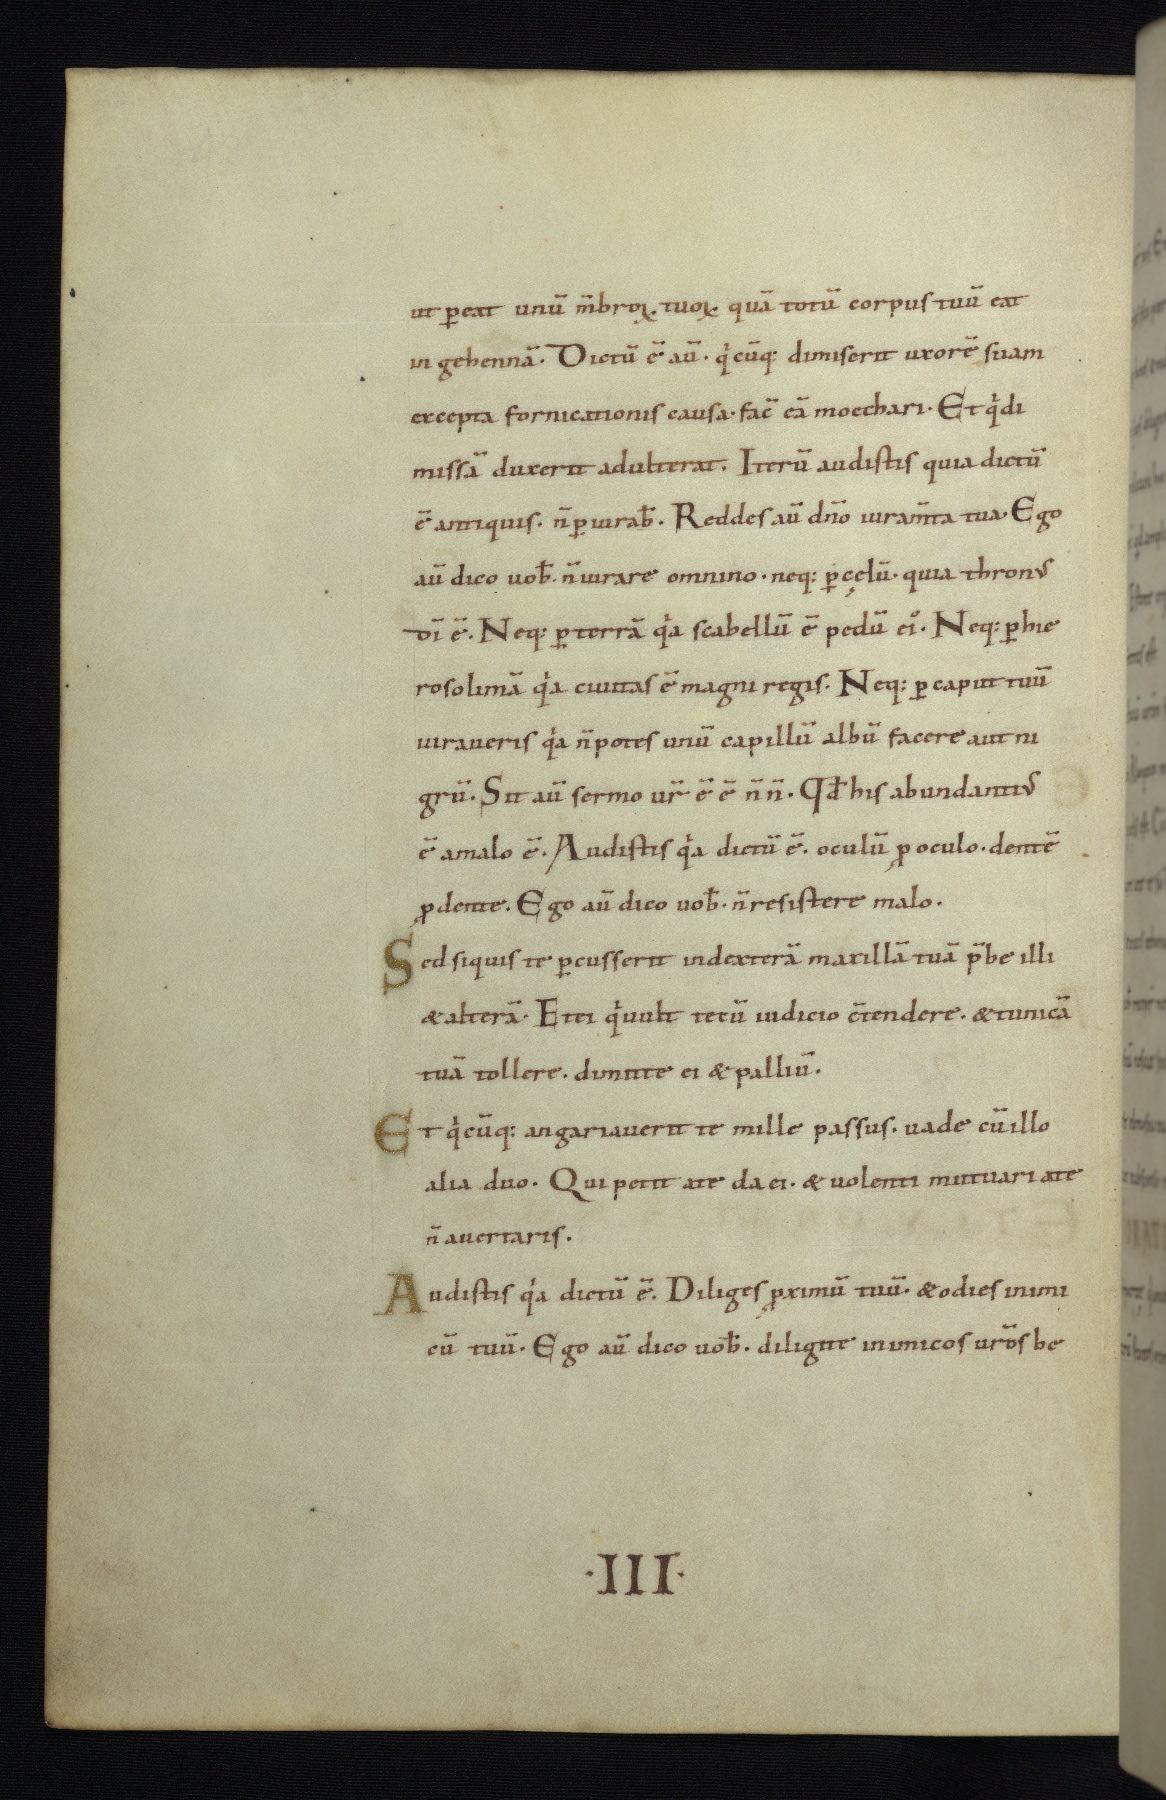 ut ꝑeat unū m̄broꝝ. tuoꝝ. quā totū corpus tuū eat
in gehennā. Dictū ē aū. qͥcūq; dimiserit uxorē suam
excepta fornicationis causa. fac̄ eā moechari. Et qͥ di
missā duxerit adulterat. Iterū audistis quia dictū
ē antiquis. n̄ ꝑiurab̄. Reddes aū dn̄o iuram̄ta tua. Ego
aū dico uob̄. n̄ iurare omnino. neq; ꝑ cęlū. quia thronꝰ
dī ē. Neq; ꝑ terrā qͥa scabellū ē pedū eiꝰ. Neq; ꝑ hie
rosolimā qͥa ciuitas ē magni regis. Neq; ꝑ caput tuū
iuraueris qͥa n̄ potes unū capillū albū facere aut ni
grū. Sit aū sermo ur̄ ē ē n̄ n̄. Qd̄ his abundantiꝰ
ē a malo ē. Audistis qͥa dictū ē. oculū ꝓ oculo. dentē
ꝓ dente. Ego aū dico uob̄. n̄ resistere malo.
Sed si quis te ꝑcusserit in dexterā maxillā tuā p̄be illi
& alterā. Et ei qͥ uult tecū iudicio c̄tendere. & tunicā
tuā tollere. dimitte ei & palliū.
Et qͥcūq; angariauerit te mille passus. uade cū illo
alia duo. Qui petit a te da ei. & uolenti mutuari a te
n̄ auertaris.
Audistis qͥa dictū ē. Diliges ꝓximū tuū. & odies inimi
cū tuū. Ego aū dico uob̄. diligite inimicos ur̄os be
·III·